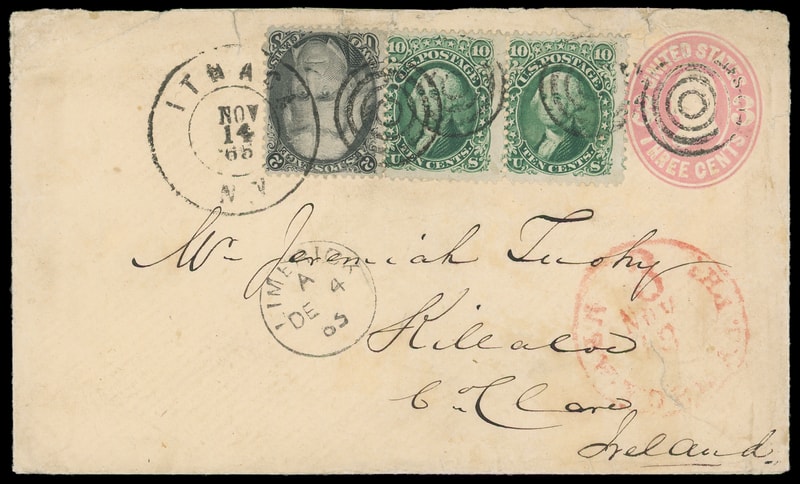 ITHACA
NOV
14
'65
N.Y.
U.S. POSTAGE
10 10
U.S. POSTAGE
TEN CENTS
U S
10 10
U.S. POSTAGE
TEN CENTS
U S
UNITED STATES
THREE CENTS
2 2
Mr Jeremiah Tuohy
LIMERICK
A 4
DE
65
Killaloe
Co Clare
Ireland